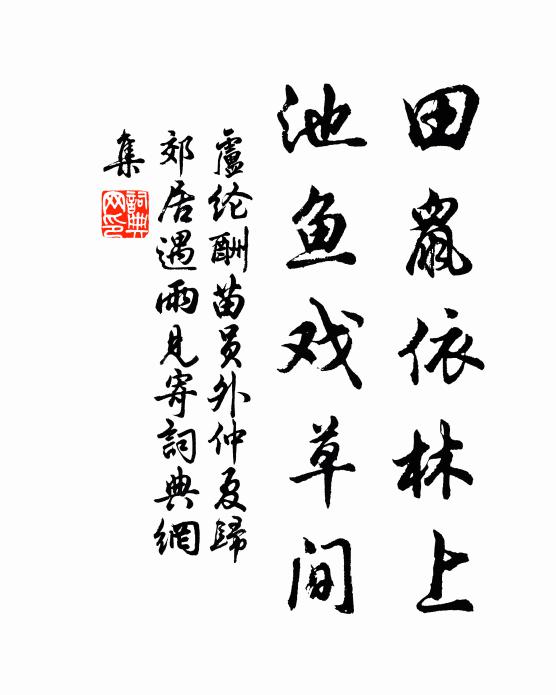 田鼠依林上
池鱼戏草间
盧纶酬苗员外仲夏歸
郊居遇雨見寄詞典網
集
詞典
网印